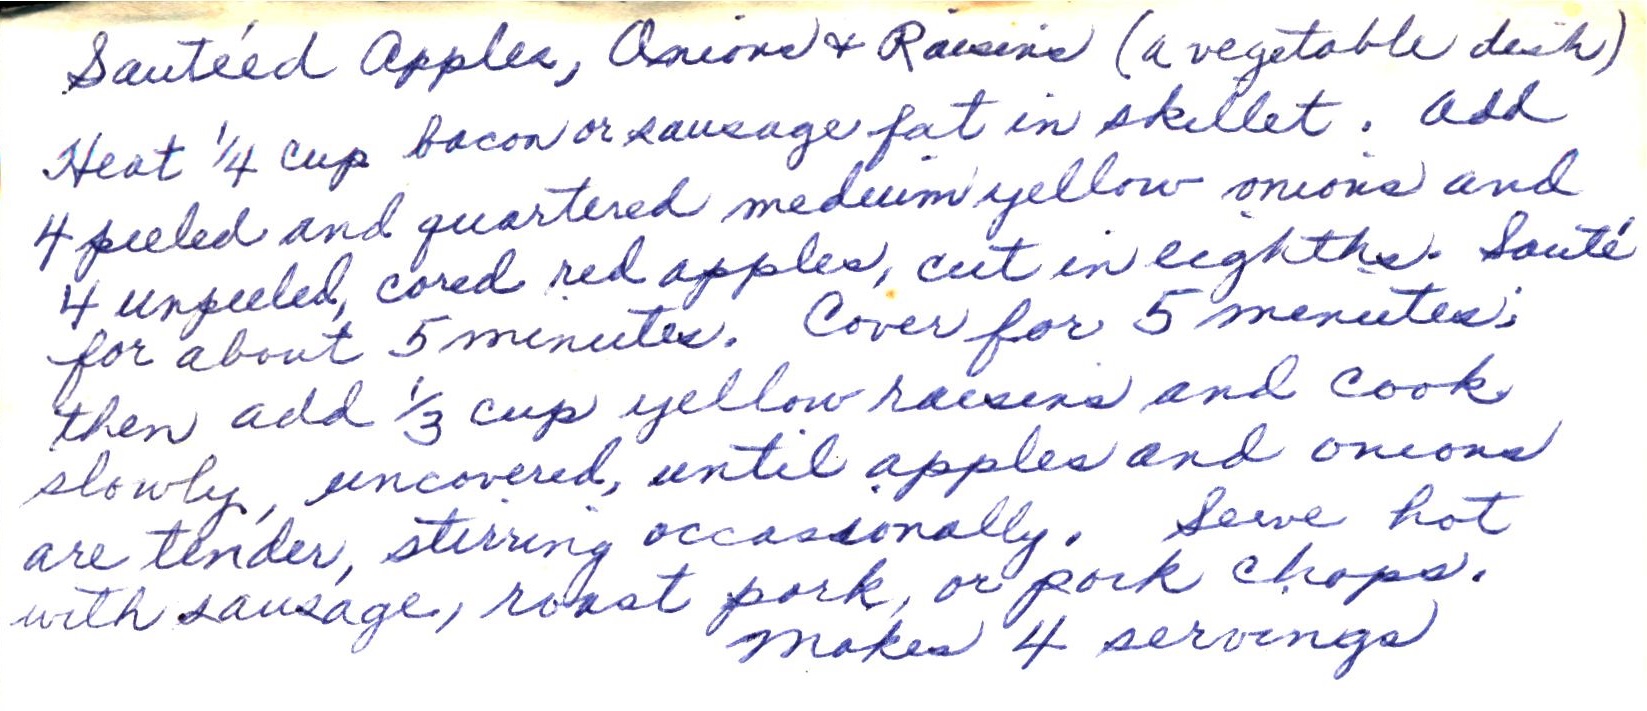 Sautéed Apples, Onions & Raisins (a vegetable dish)
Heat 1/4 cup bacon or sausage fat in skillet. Add
4 peeled and quartered medium yellow onions and
4 unpeeled, cored red apples, cut in eighths. Sauté
for about 5 minutes. Cover for 5 minutes;
then add 1/3 cup yellow raisins and cook
slowly, uncovered, until apples and onions
are tender, stirring occassionally. Serve hot
with sausage, roast pork, or pork chops.
Makes 4 servings